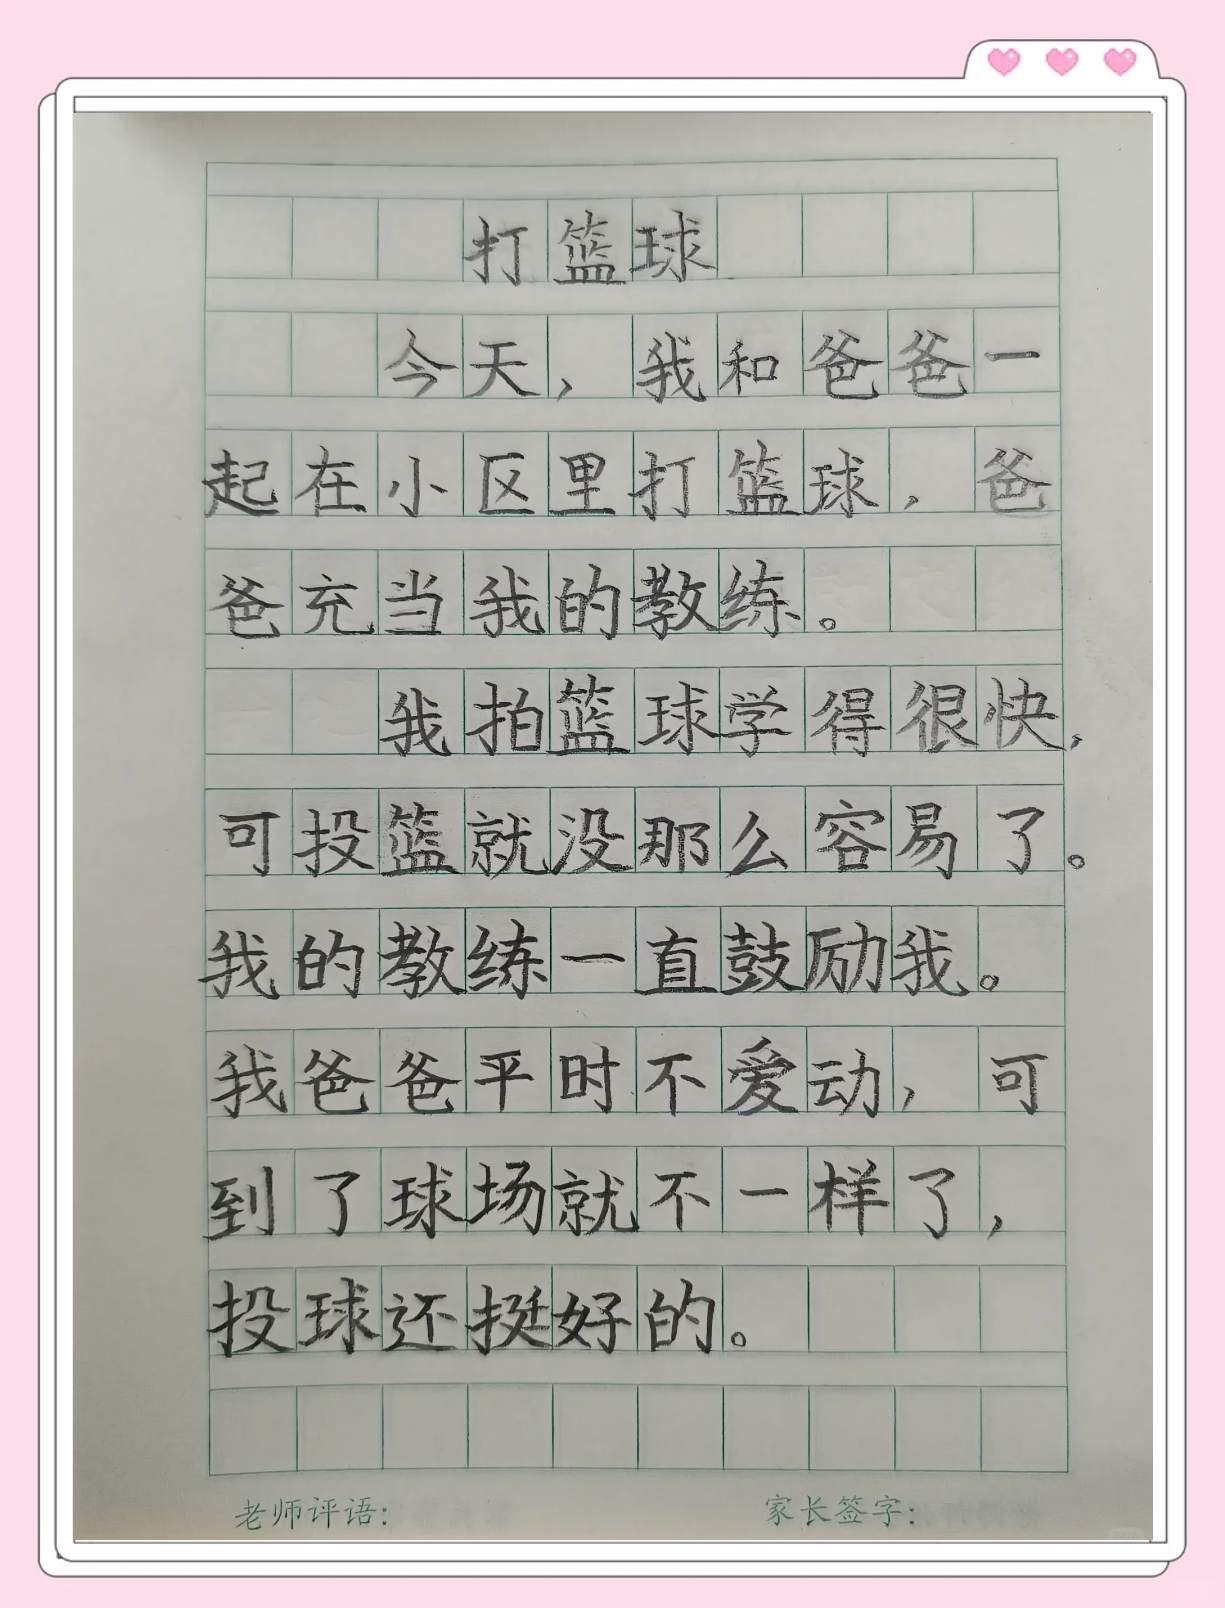 打篮球
今天，我和爸爸一
起在小区里打篮球，爸
爸充当我的教练。
我拍篮球学得很快，
可投篮就没那么容易了。
我的教练一直鼓励我。
我爸爸平时不爱动，可
到了球场就不一样了，
投球还挺好的。
老师评语：
家长签字：